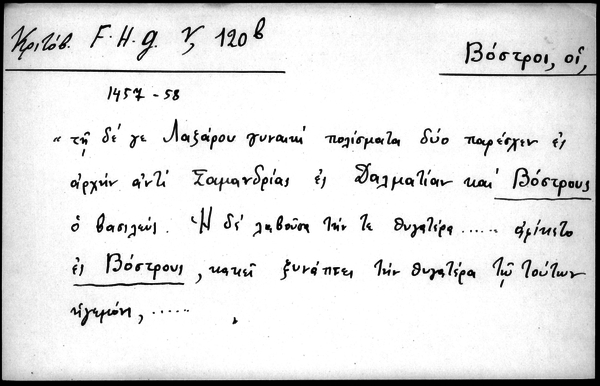 Κριτόβ. F.H.g. V, 120b
Βόστροι, οἱ,
1457-58
"τῇ δέ γε Λαζάρου γυναικὶ πολίσματα δύο παρέσχεν ἐς
ἀρχὴν ἀντὶ Σαμανδρίας ἐς Δαλματίαν καὶ Βόστρους
ὁ βασιλεύς. Ἡ δὲ λαβοῦσα τήν τε θυγατέρα ...... ἀφίκετο
ἐς Βόστρους, κακεῖ ξυνάπτει τὴν θυγατέρα τῷ τούτων
ἡγεμόνι, ......